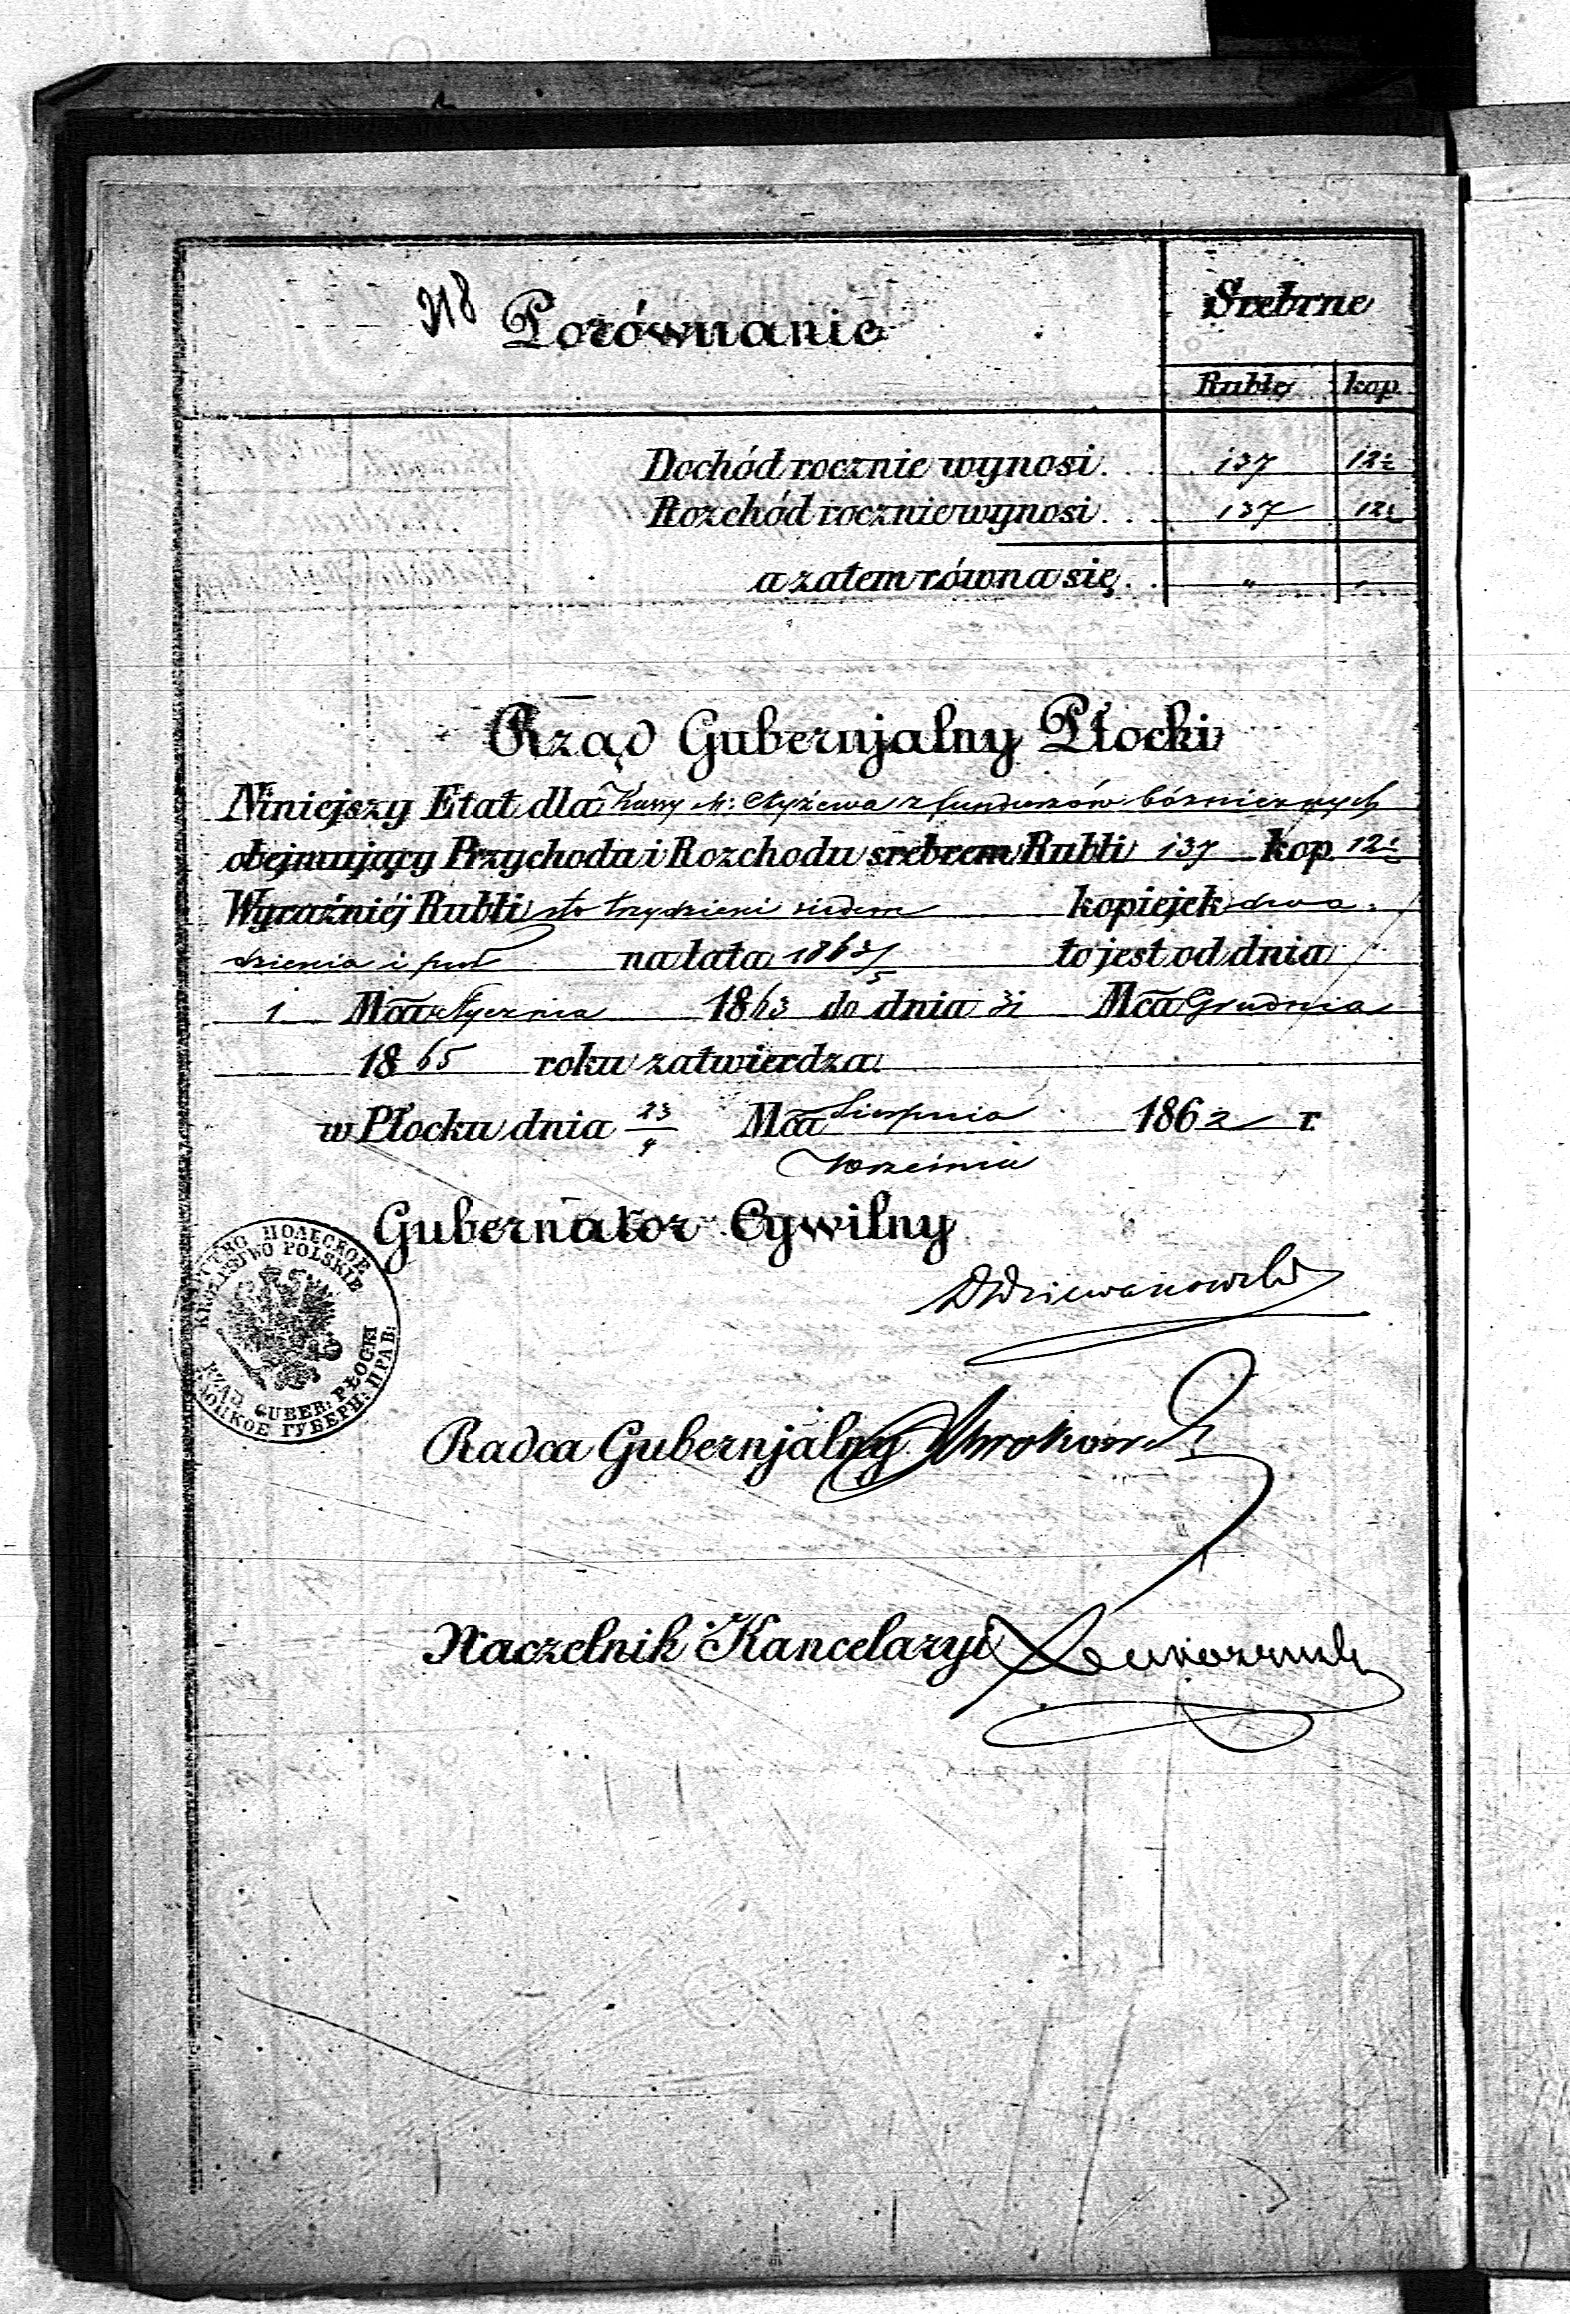 318 Porównanie
Srebrne
Ruble kop.
Dochód rocznie wynosi. . . 137 12½
Rozchód rocznie wynosi. . . 137 12½
a zatem równa się. . . " "
Rząd Gubernjalny Płocki
Niniejszy Etat dla Kassy M. Czyżewa z funduszów bóżniczych
obejmujący Przychodu i Rozchodu srebrem Rubli 137 kop. 12½
Wyraźniéj Rubli sto trzydzieści siedem kopiejek dwa-
dzieścia i puł na lata 1863/5 to jest od dnia
1 Mca Stycznia 1863 do dnia 31 Mca Grudnia
1865 roku zatwierdza.
w Płocku dnia 23/4 Mca Sierpnia 1862 r.
Września
Gubernator Cywilny
KRÓLESTWO POLSKIE
RZĄD GUBER: PŁOCKI
Radca Gubernjalny
Naczelnik Kancelaryi